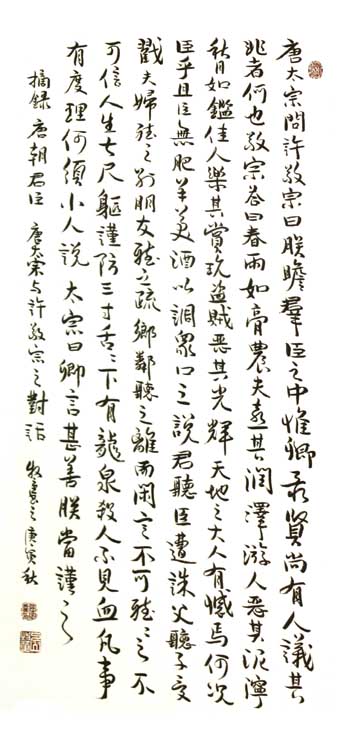 唐太宗問許敬宗曰朕瞻羣臣之中惟卿最賢尚有人議其
非者何也敬宗答曰春雨如膏農夫喜其潤澤游人惡其泥濘
秋月如鑑佳人樂其賞玩盜賊惡其光輝天地之大人有憾焉何况
臣乎且臣無肥羊美酒以調衆口之說君聽臣遭誅父聽子受
戮夫婦聽之別朋友聽之疏鄉鄰聽之離而閑言不可聽〻之不
可信人生七尺軀謹防三寸舌〻下有龍泉殺人不見血凡事
有度理何須小人說 太宗曰卿言甚善朕當謹之
摘録唐朝君臣 唐太宗与許敬宗之對話 庚寅秋